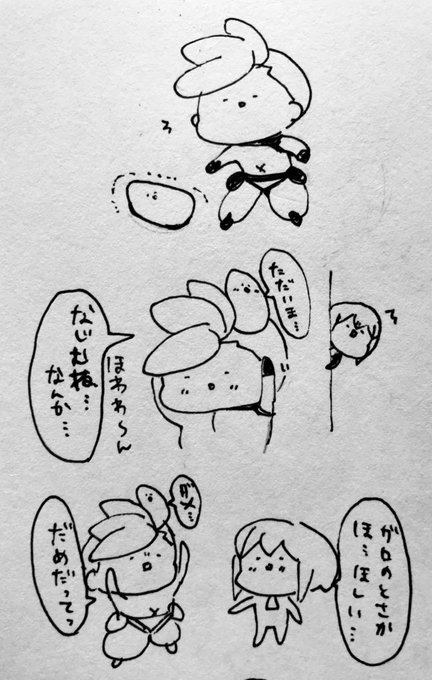 ただいま…
なじむ枝…
なんか…
ほわわ〜ん
ガロのとさか
ほ…ほしい…
ダメ…
だめだってっ